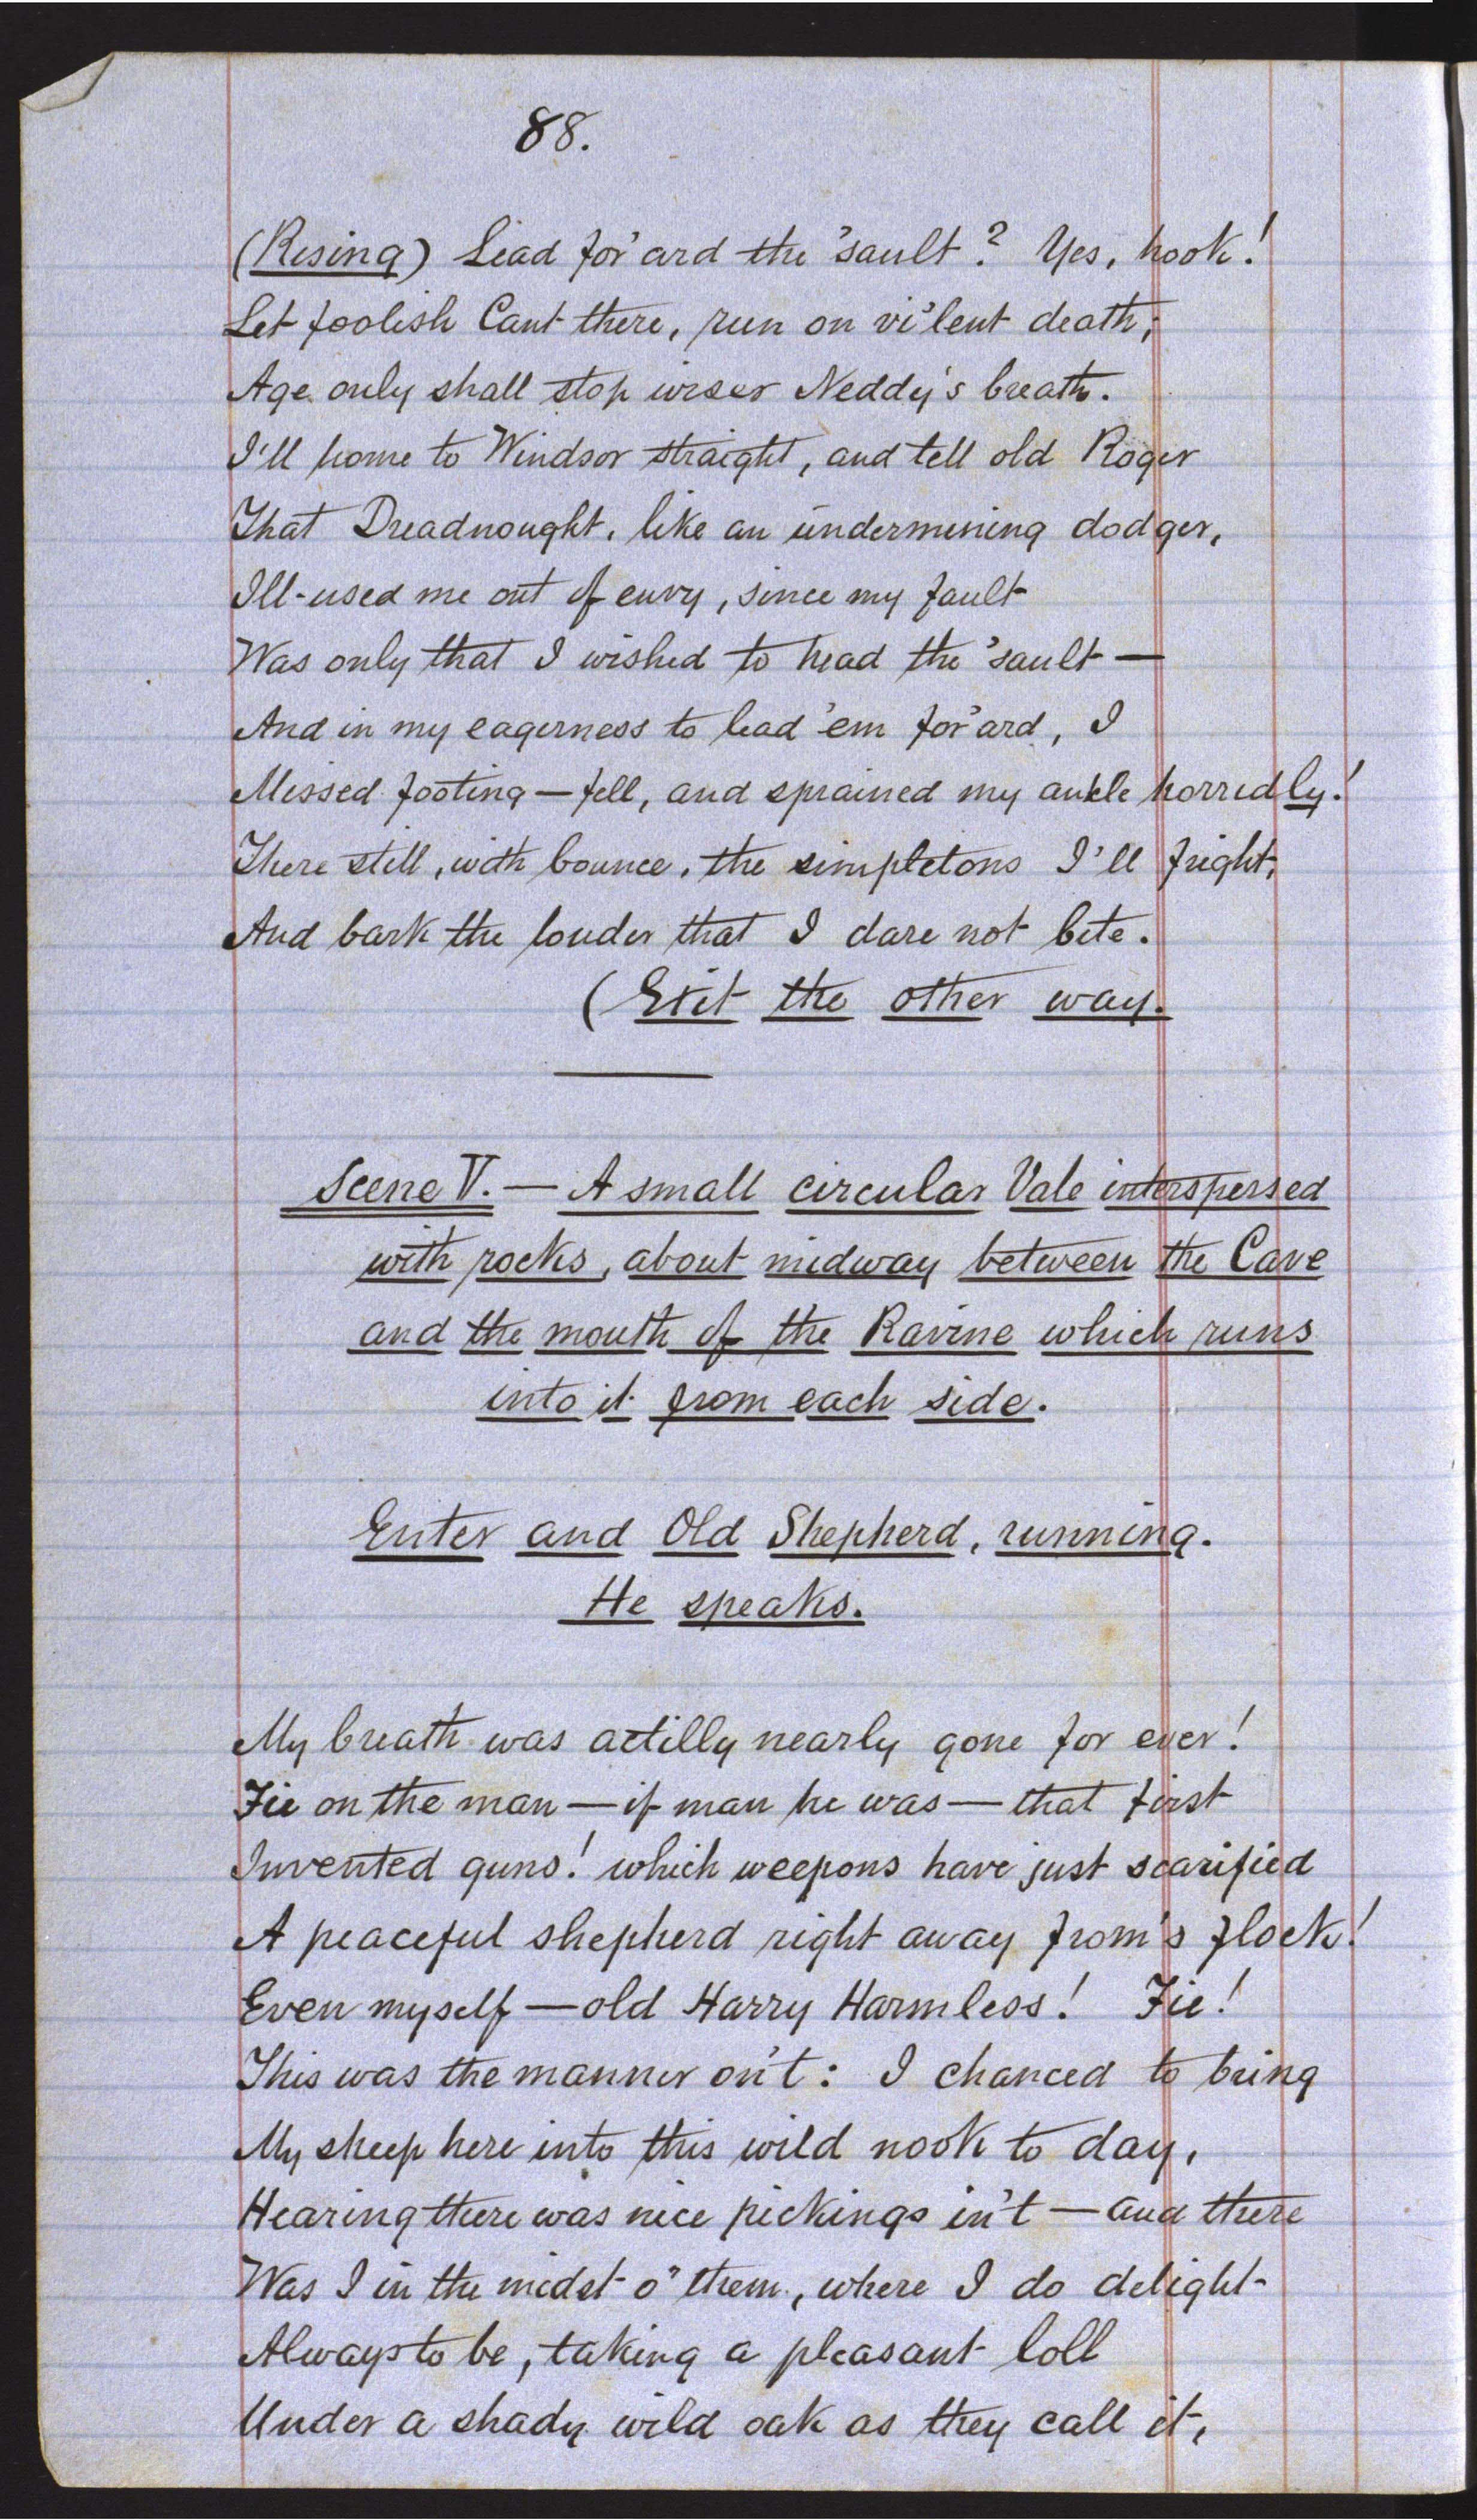 88.
(Rising) Lead for'ard the 'sault? Yes, hook!
Let foolish Cant there, run on vi'lent death;
Age only shall stop wiser Neddy's breath.
I'll home to Windsor straight, and tell old Roger
That Dreadnought, like an undermining dodger,
Ill-used me out of envy, since my fault
Was only that I wished to head the 'sault —
And in my eagerness to lead 'em for'ard, I
Missed footing — fell, and sprained my ankle horridly!
There still, with bounce, the simpletons I'll fright,
And bark the louder that I dare not bite.
(Exit the other way.
Scene V. — A small circular Vale interspersed
with rocks, about midway between the Cave
and the mouth of the Ravine which runs
into it from each side.
Enter and Old Shepherd, running.
He speaks.
My breath was actilly nearly gone for ever!
Fie on the man — if man he was — that first
Invented guns! which weepons have just scarified
A peaceful shepherd right away from's flock!
Even myself — old Harry Harmless! Fie!
This was the manner on't: I chanced to bring
My sheep here into this wild nook to day,
Hearing there was nice pickings in't — and there
Was I in the midst o' them, where I do delight
Always to be, taking a pleasant loll
Under a shady wild oak as they call it,